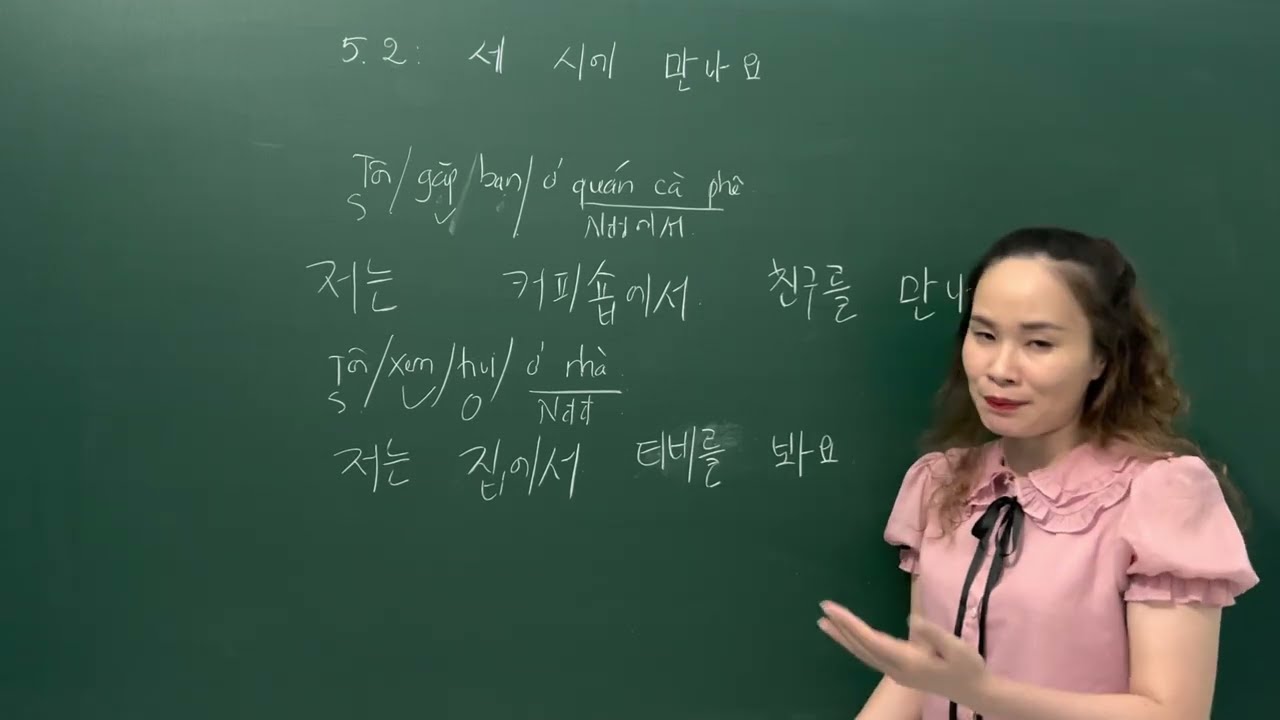 5.2: 세 시에 만나요
Tôi/gặp/bạn/ở quán cà phê
S Nđđ에서
저는 커피숍에서 친구를 만나
Tôi/xem/tivi/ở nhà
S O Nđđ
저는 집에서 티비를 봐요